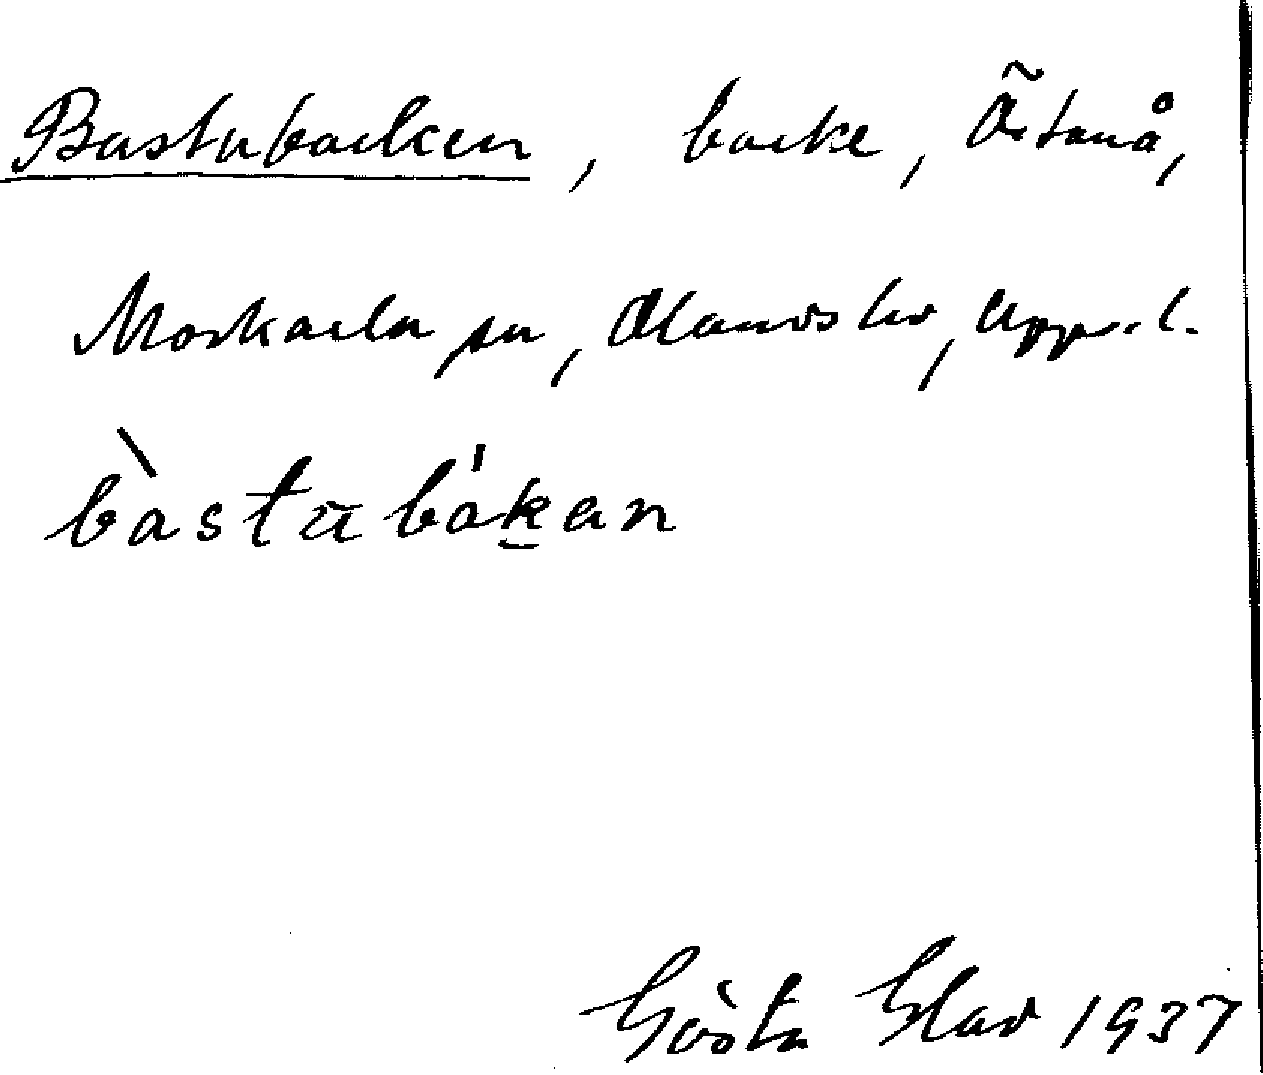 Bastubacken, backe, Östanå,
Morkarla sn, Olands hd, Uppl.
bàstubákan
Gösta Glad 1937